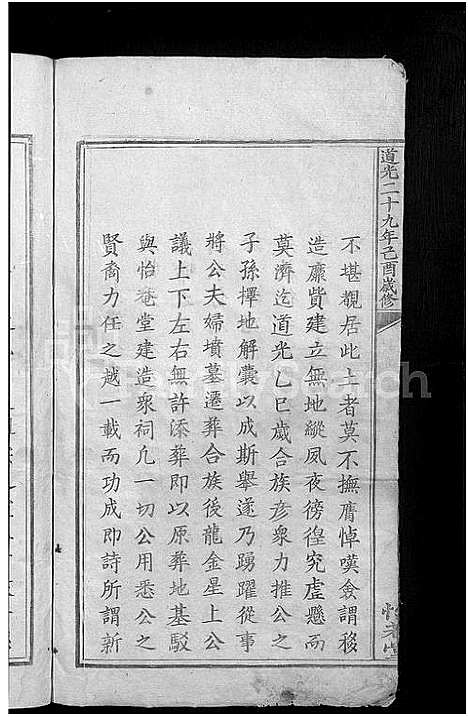 道光二十九年己酉歲修
不堪觀居此土者莫不撫膺悼嘆僉謂移
造靡貲建立無地縱夙夜徬徨究虛懸而
莫濟迄道光乙巳歲合族彥眾力推公之
子孫擇地解囊以成斯舉遂乃踴躍從事
將公夫婦墳墓遷葬合族後龍金星上公
議上下左右無許添葬即以原葬地基駁
與怡菴堂建造眾祠凡一切公用悉公之
賢裔力任之越一載而功成即詩所謂新